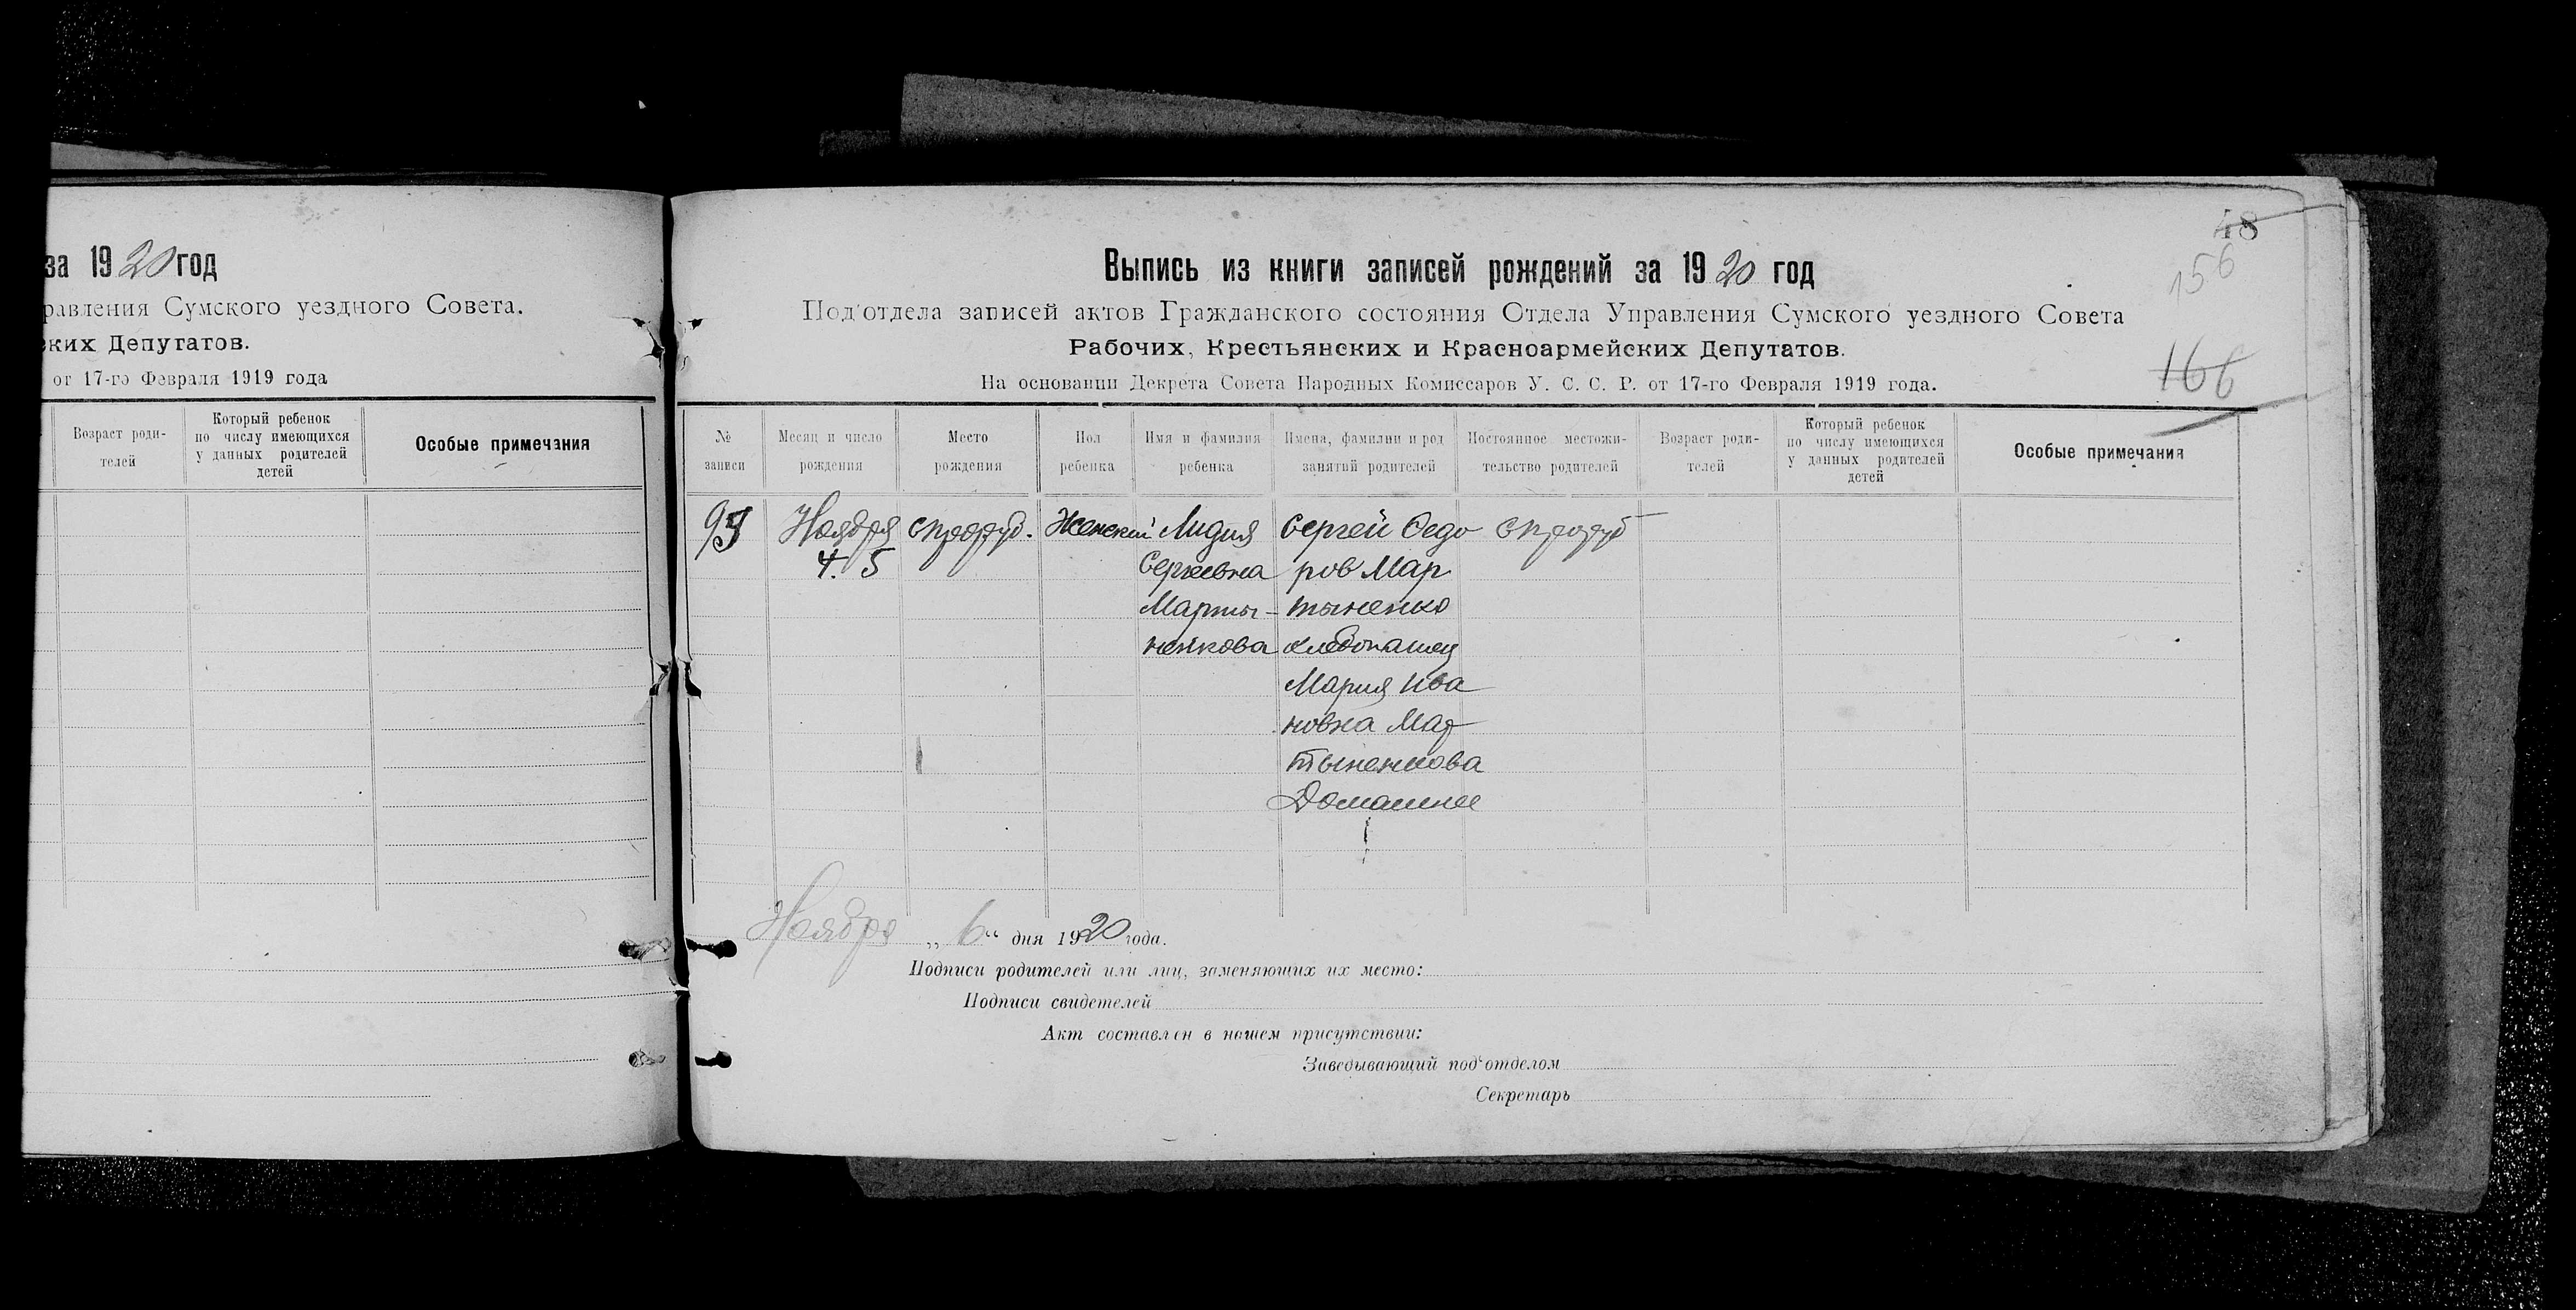 за 1920 год
равления Сумского уездного Совета.
ких Депутатов.
от 17-го Февраля 1919 года
Возраст роди-
телей
Который ребенок
по числу имеющихся
у данных родителей
детей
Особые примечания
48
156
166
Выпись из книги записей рождений за 1920 год
Под'отдела записей актов Гражданского состояния Отдела Управления Сумского уездного Совета
Рабочих, Крестьянских и Красноармейских Депутатов.
На основании Декрета Совета Народных Комиссаров У. С. С. Р. от 17-го Февраля 1919 года.
№
записи
Месяц и число
рождения
Место
рождения
Пол
ребенка
Имя и фамилия
ребенка
Имена, фамилии и род
занятий родителей
Постоянное местожи-
тельство родителей
Возраст роди-
телей
Который ребенок
по числу имеющихся
у данных родителей
детей
Особые примечания
Ноября
4. 5
Женский
Лидия
Сергеевна
Марты-
ненкова
Сергей Федо
ров Мар
тыненко
хлебопашец
Мария Ива
новна Мар
тыненкова
Домашнее
Ноября „ 6 “ дня 1920 года.
Подписи родителей или лиц, заменяющих их место:
Подписи свидетелей
Акт составлен в нашем присутствии:
Заведывающий под'отделом
Секретарь